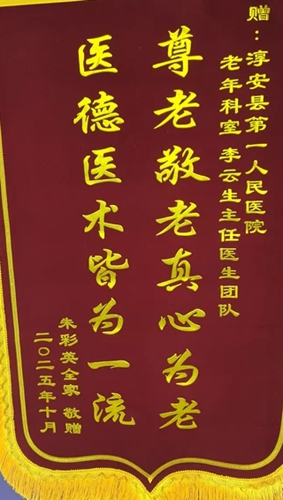 赠：淳安县第一人民医院
老年科室 李云生主任医生团队
尊老敬老真心为老
医德医术皆为一流
朱彩英全家 敬赠
二〇二五年十月